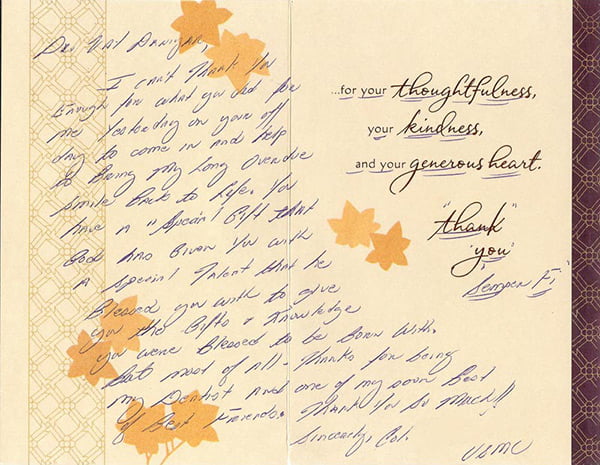 Dr. Nat Danizar,
I can't Thank You
Enough for what you did for
me Yesterday on your off
day to come in and help
to Bring My Long Overdue
Smile Back to Life. You
have a "Special Gift that
God has Given You with
A special Talent that he
Blessed you with to give
you the Gifts & Knowledge
you were Blessed to be Born With.
But most of all - Thanks for being
my Dentist and one of my soon Best
of Best Friends. Thank You So Much!!
Sincerely, Col.
USMC
...for your thoughtfulness,
your kindness,
and your generous heart.
"thank
you"
"Semper Fi"